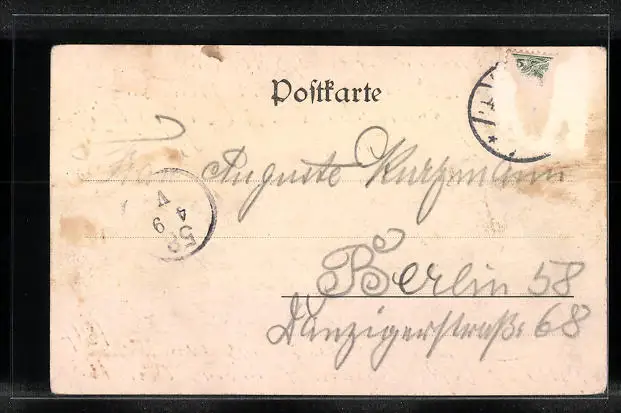 Postkarte
Frau Auguste Kurzmann
Berlin 58
Danzigerstraße 68
58
9
4
V